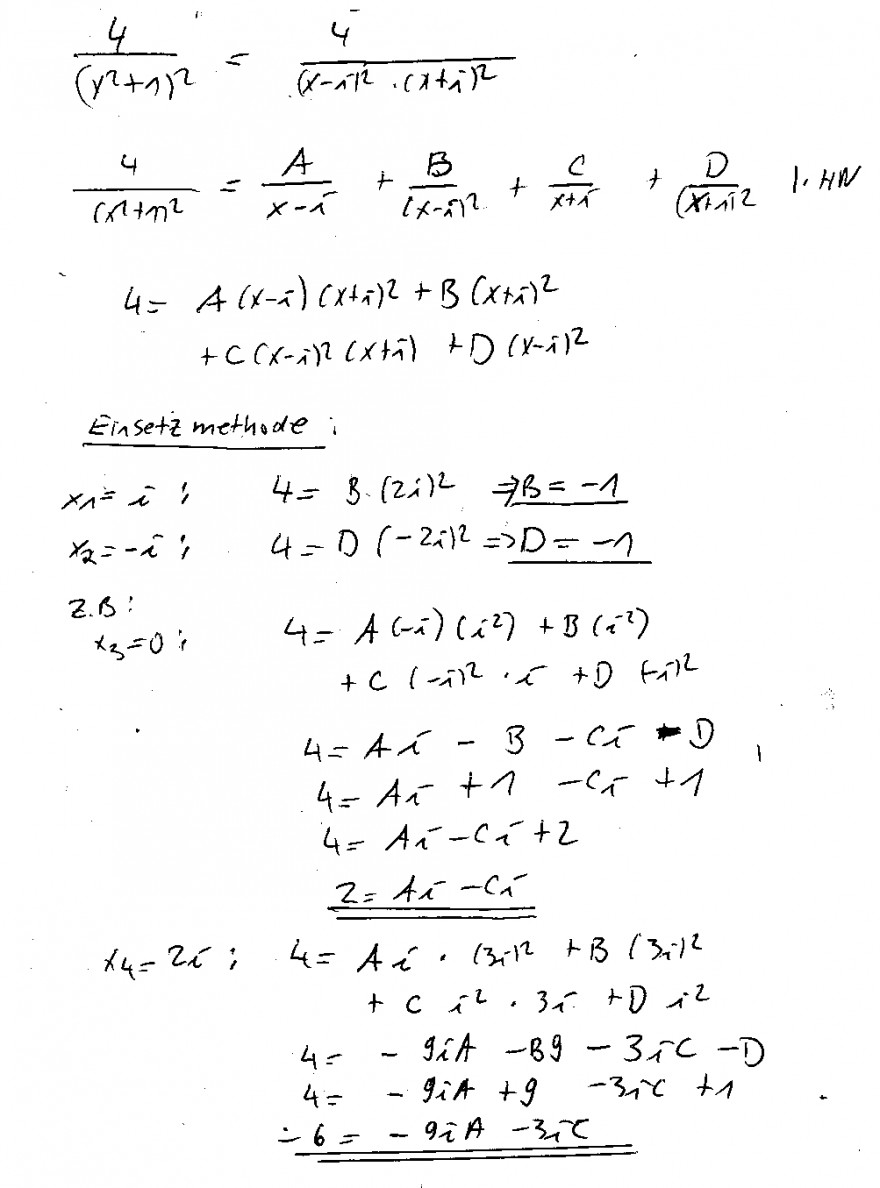 4/(x²+1)² = 4/((x-i)² · (x+i)²)
4/(x²+1)² = A/(x-i) + B/(x-i)² + C/(x+i) + D/(x+i)² |· HN
4 = A (x-i) (x+i)² + B (x+i)²
+ C (x-i)² (x+i) + D (x-i)²
Einsetzmethode :
x₁ = i ; 4 = B · (2i)² ⇒ B = -1
x₂ = -i ; 4 = D (-2i)² => D = -1
z.B :
x₃ = 0 ; 4 = A (-i) (i²) + B (i²)
+ C (-i)² · i + D (-i)²
4 = A i - B - Ci - D
4 = Ai + 1 - Ci + 1
4 = Ai - Ci + 2
2 = Ai - Ci
x₄ = 2i ; 4 = A i · (3i)² + B (3i)²
+ C i² · 3i + D i²
4 = - 9iA - B9 - 3iC - D
4 = - 9iA + 9 - 3iC + 1
- 6 = - 9iA - 3iC